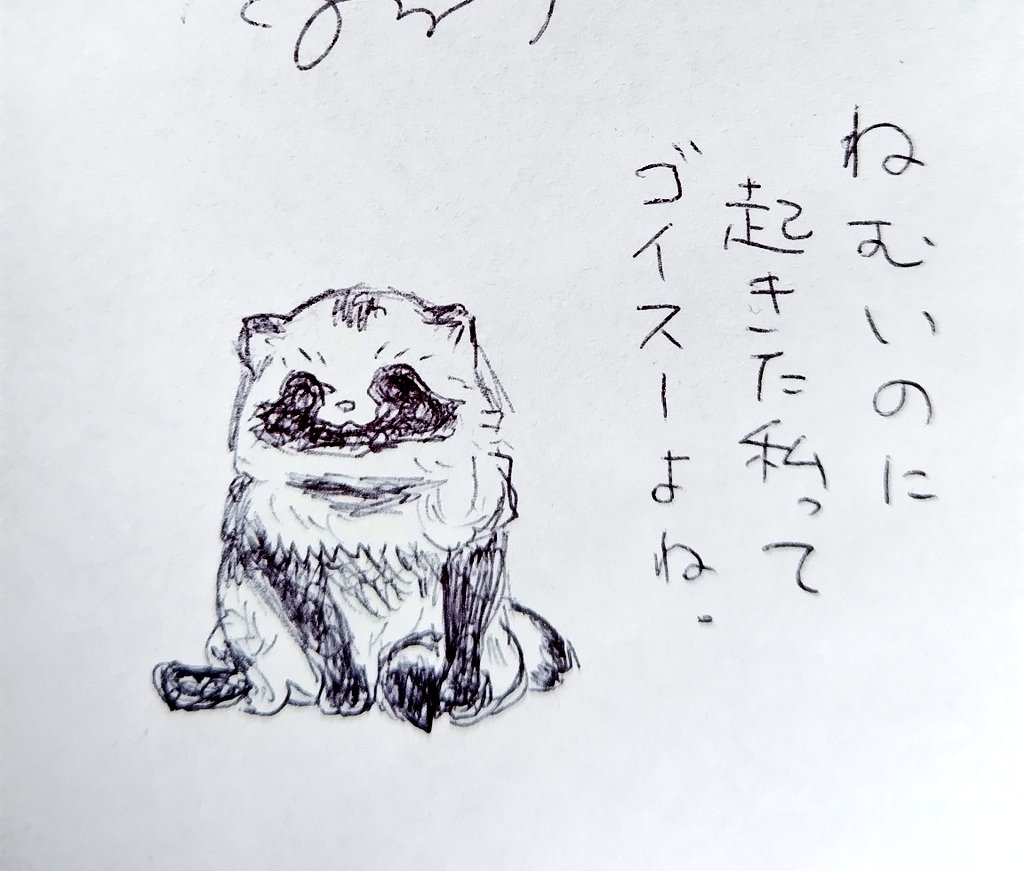 ねむいのに
起きた私って
ゴイスーよね.